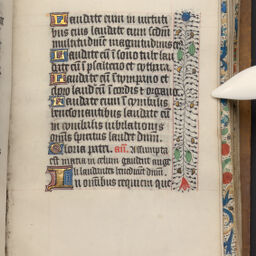 Laudate eum in virtuti
bus eius laudate eum scdm
multitudinem magnitudinis e
Laudate eū ī sono tube lau
date eū ī psalterio et cythara
Laudate eū ī tympano et
choro laud eū ī cordis t organo
Laudate eum ī cymbalis
benesonantibus laudate eū
in cymbalis iubilationis
omīs spiritus laudet dnm.
Gloria patri. añ. Assumpta
est maria in celum gaudent ange
li laudantes benedicunt dnm.
In omībus requiem que